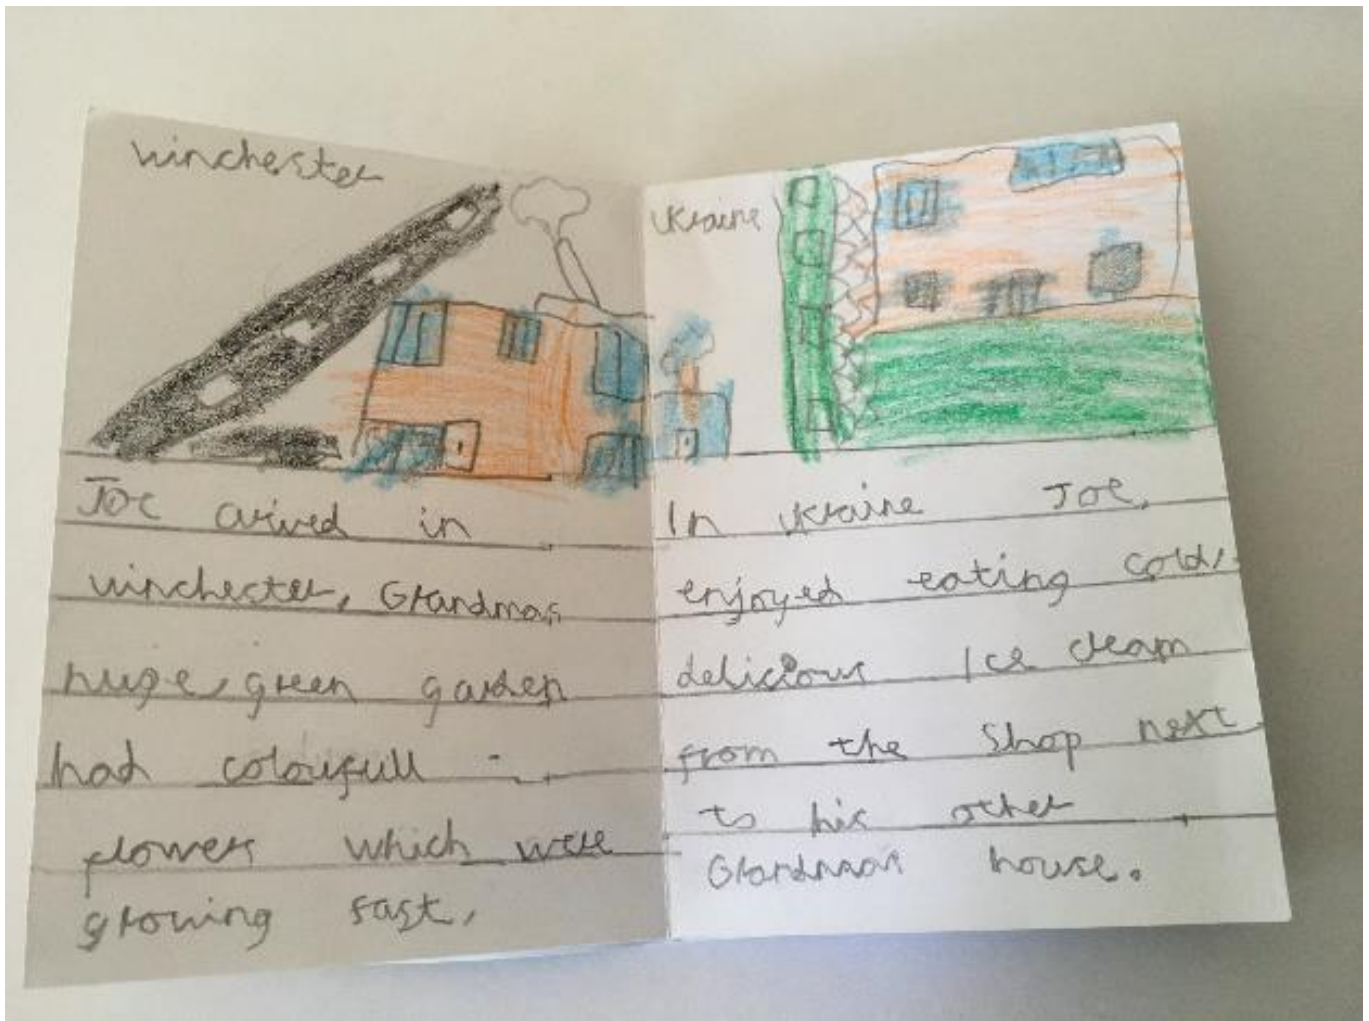 Winchester
Joe arived in
Winchester, Grandmas
huge, green garden
had colourfull
flowers which were
growing fast,
Ukraine
In Ukraine Joe,
enjoyed eating cold,
delicious Ice cream
from the Shop next
to his other
Grandmas house.